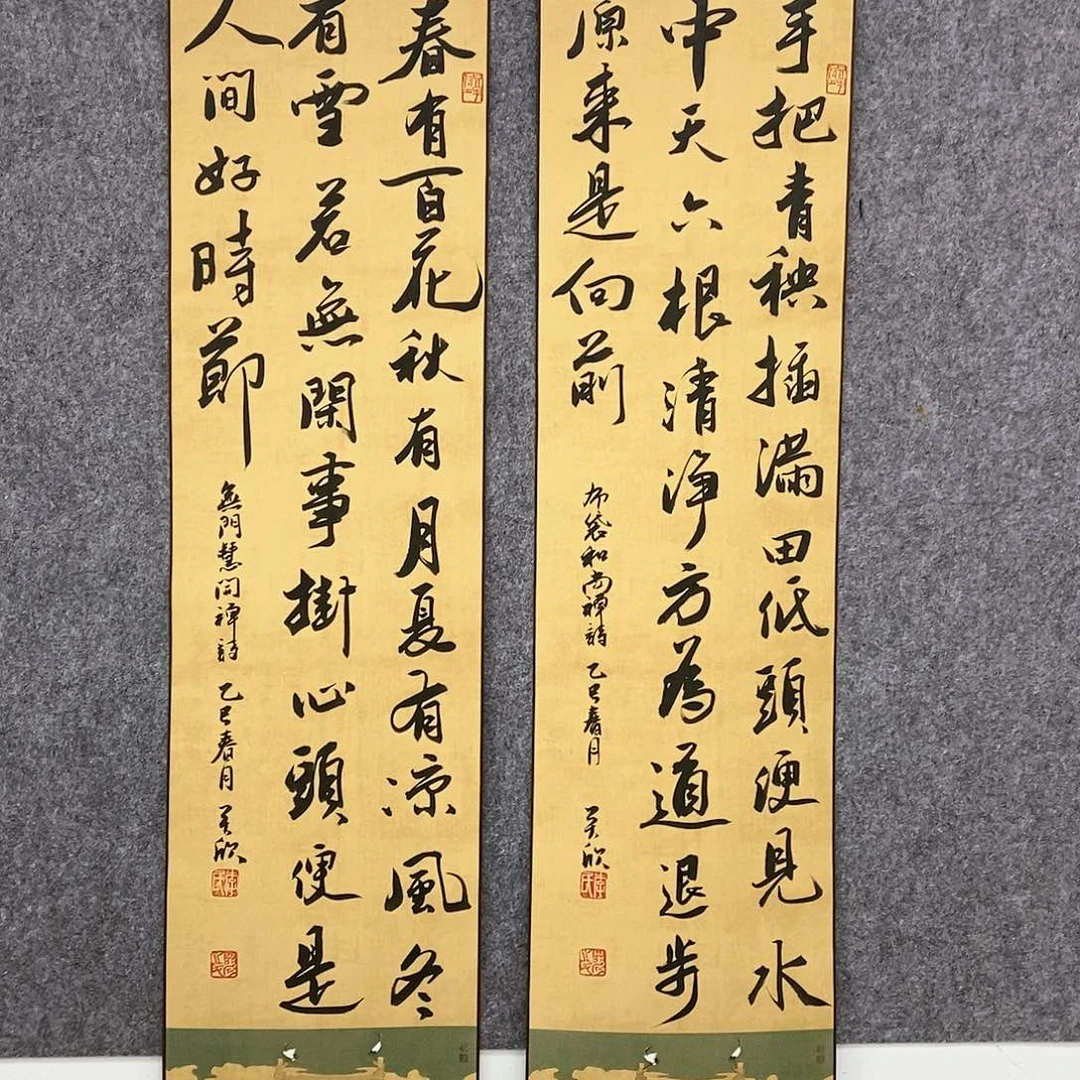 手把青秧插滿田低頭便見水
中天六根清淨方為道退步
原來是向前
布袋和尚禪詩 乙巳春月 吴欣
春有百花秋有月夏有涼風冬
有雪若無閑事掛心頭便是
人間好時節
無門慧開禪詩 乙巳春月 吴欣